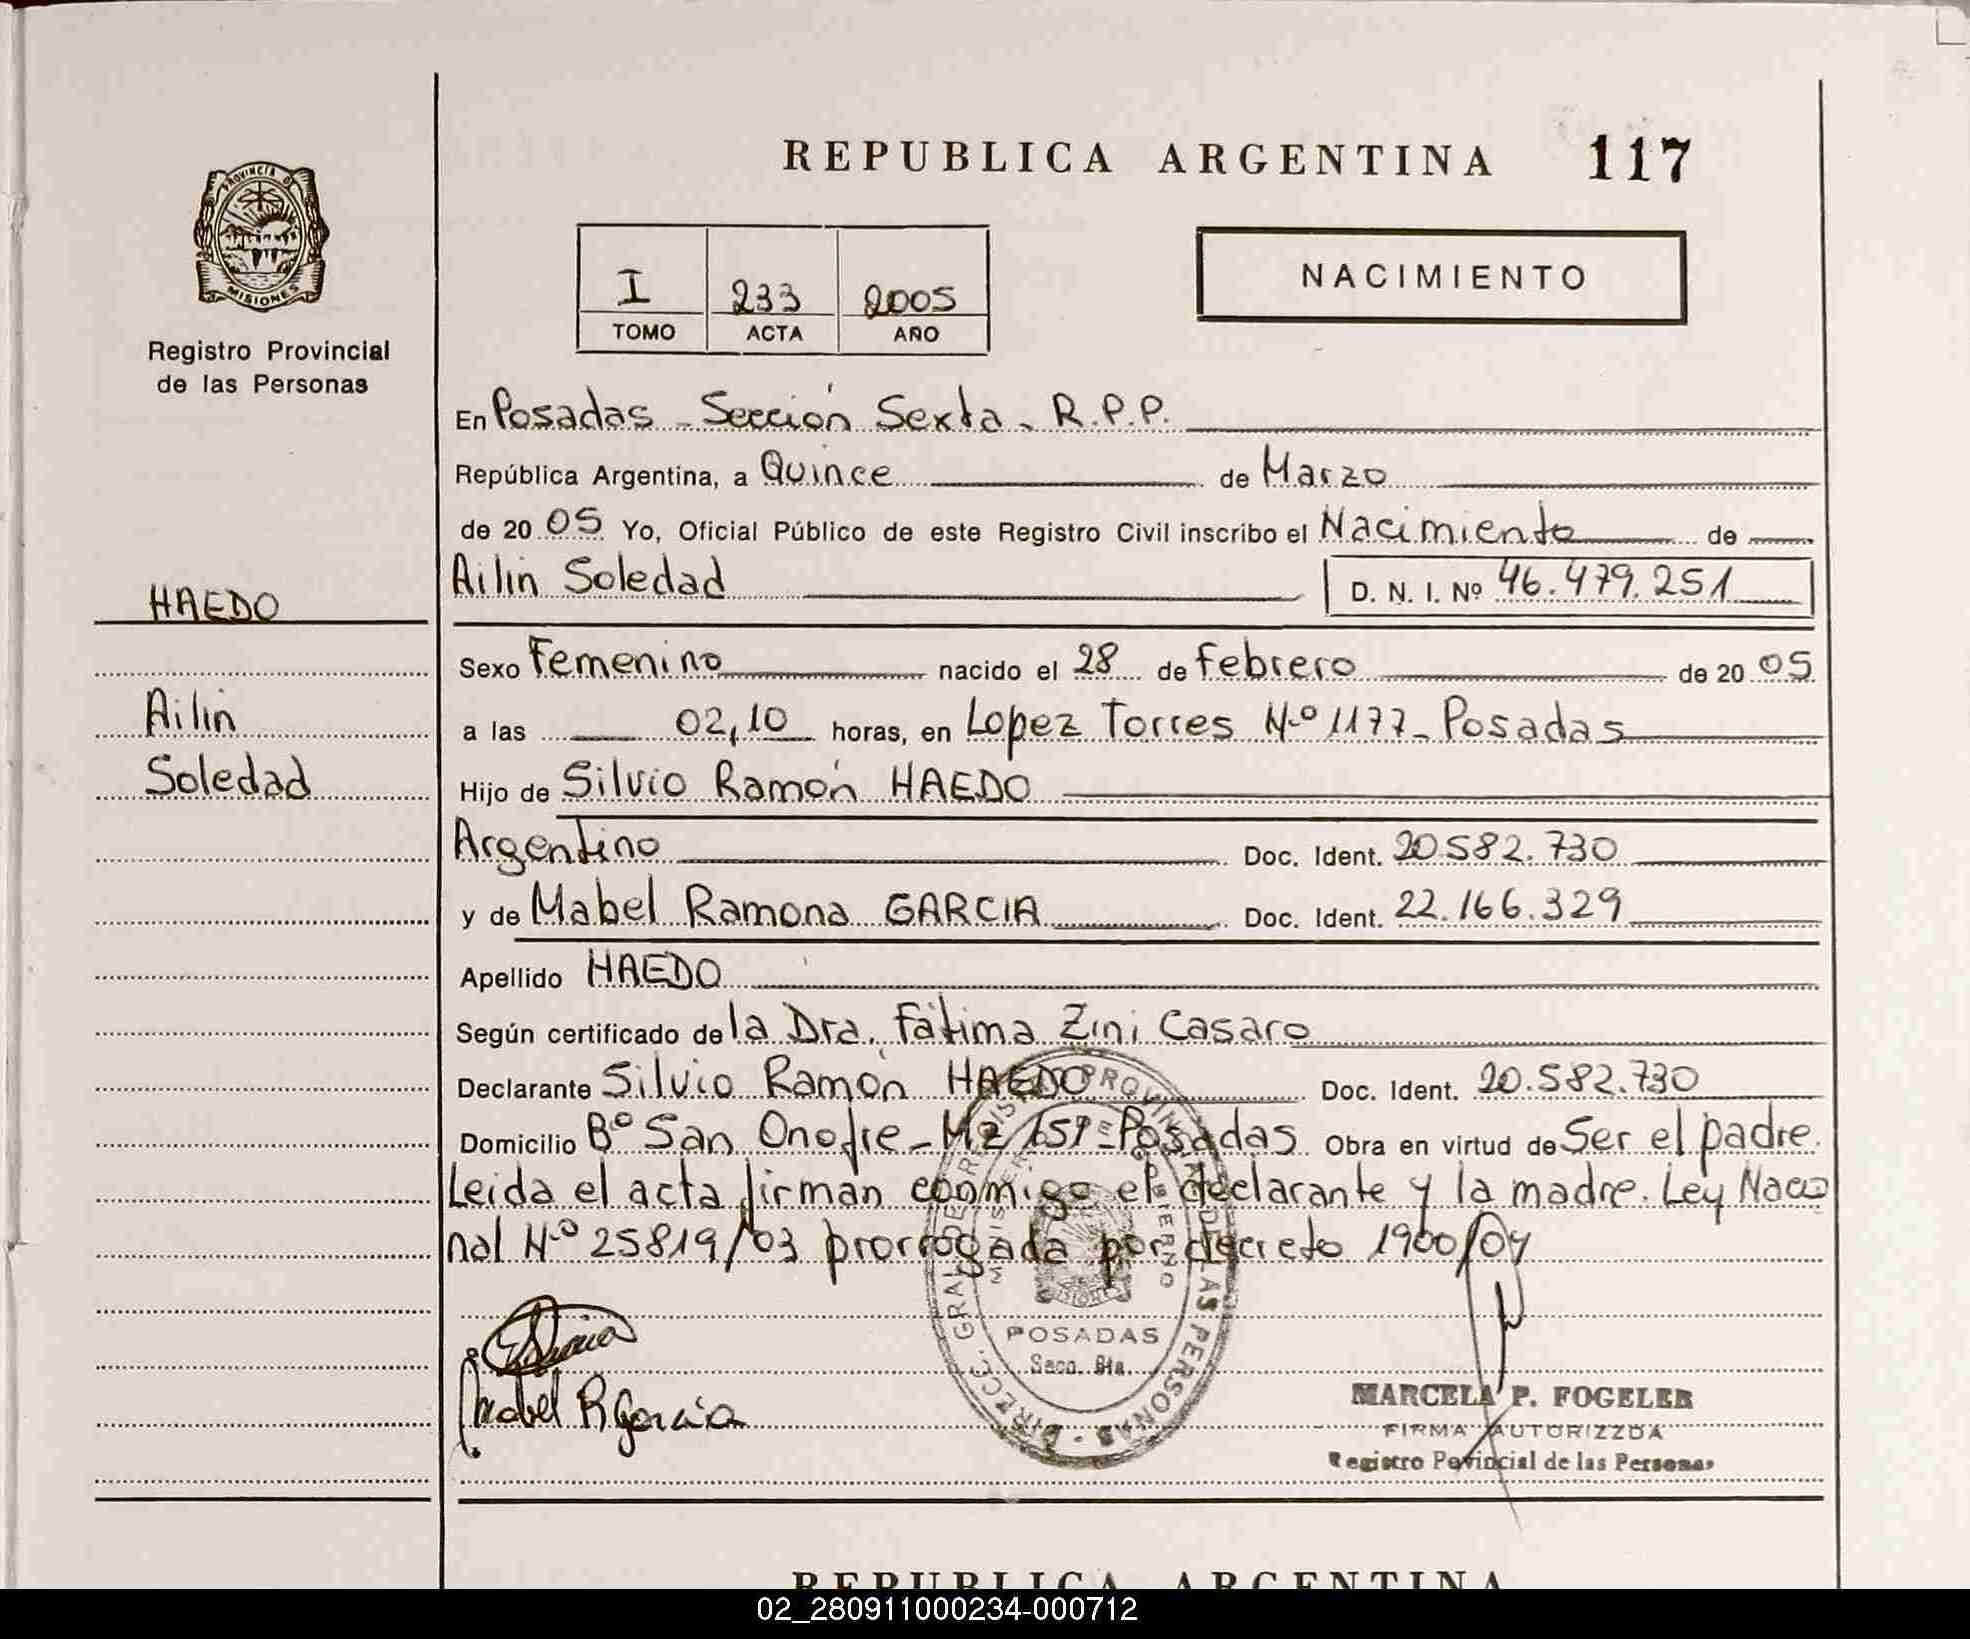 REPUBLICA ARGENTINA 117
PROVINCIA D
MISIONES
Registro Provincial
de las Personas
I 233 2005
TOMO ACTA AÑO
NACIMIENTO
En Posadas - Sección Sexta - R.P.P.
República Argentina, a Quince de Marzo
de 20 05 Yo, Oficial Público de este Registro Civil inscribo el Nacimiento de
HAEDO
Ailin Soledad D. N. I. Nº 46.479.251
Sexo Femenino nacido el 28 de Febrero de 20 05
Ailin
a las 02,10 horas, en Lopez Torres N.º 1177 - Posadas
Soledad
Hijo de Silvio Ramón HAEDO
Argentino Doc. Ident. 20.582.730
y de Mabel Ramona GARCIA Doc. Ident. 22.166.329
Apellido HAEDO
Según certificado de la Dra. Fátima Zini Casaro
Declarante Silvio Ramón HAEDO Doc. Ident. 20.582.730
Domicilio Bº San Onofre - Mz 151 - Posadas Obra en virtud de Ser el padre.
Leida el acta firman conmigo el declarante y la madre. Ley Nacio
nal N.º 25819/03 prorrogada por decreto 1900/04
POSADAS
Secc. 6ta.
Mabel R Garcia
MARCELA P. FOGELER
FIRMA AUTORIZZDA
Registro Povincial de las Personas
REPUBLICA ARGENTINA
02_280911000234-000712